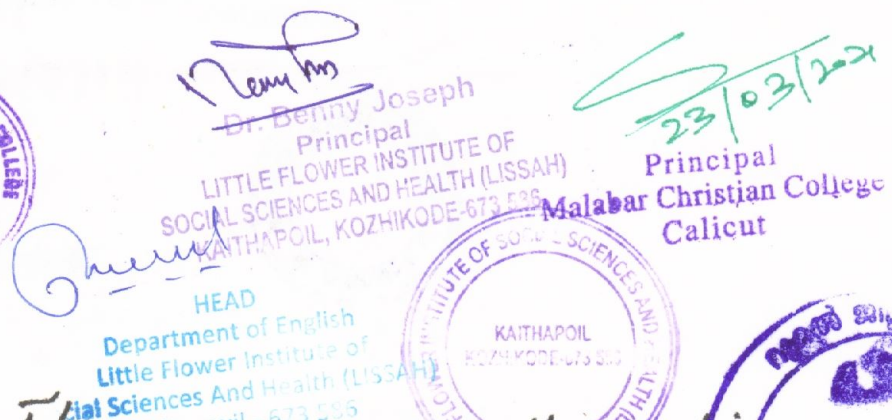 Dr. Benny Joseph
Principal
LITTLE FLOWER INSTITUTE OF
SOCIAL SCIENCES AND HEALTH (LISSAH)
KAITHAPOIL, KOZHIKODE-673 586
23/03/2021
Principal
Malabar Christian College
Calicut
HEAD
Department of English
Little Flower Institute of
cial Sciences And Health (LISSAH)
INSTITUTE OF SOCIAL SCIENCES AND HEALTH
KAITHAPOIL